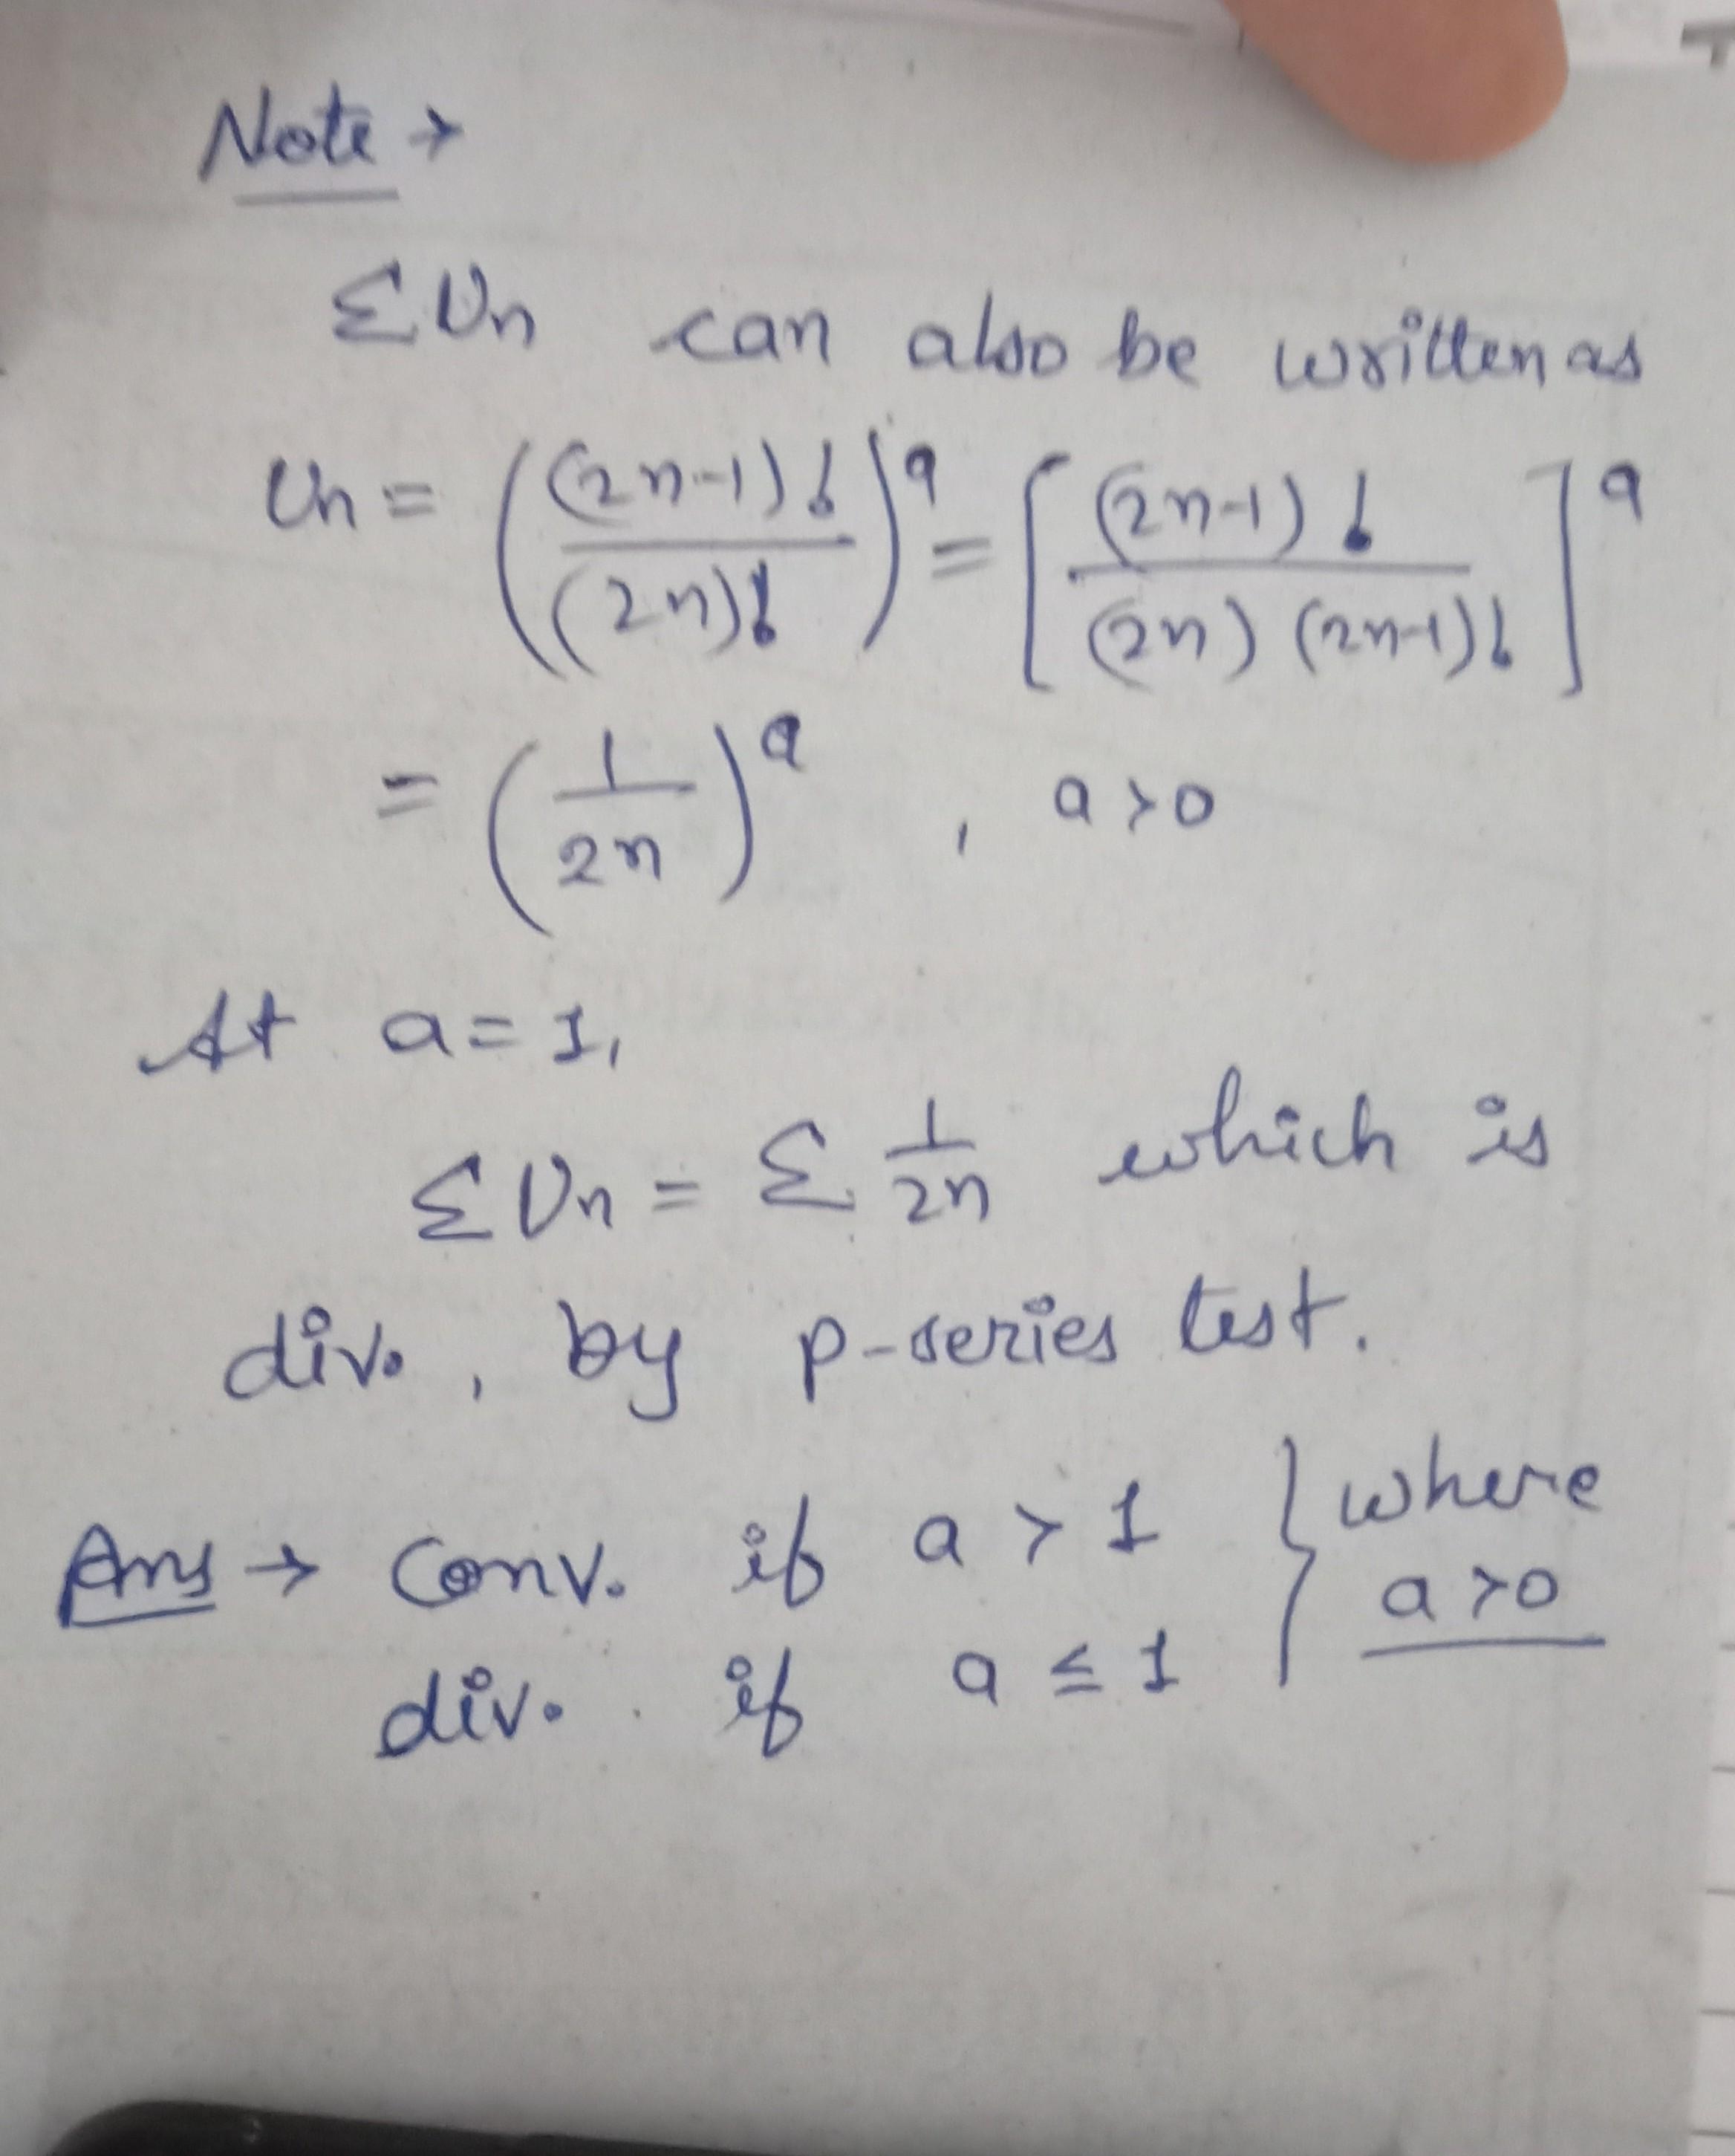 Note →
ΣUn can also be written as
Un = ((2n-1)! / (2n)!)^a = [(2n-1)! / (2n) (2n-1)!]^a
= (1/2n)^a , a>0
At a=1,
ΣUn = Σ 1/2n which is
div., by p-series test.
Ans → Conv. if a > 1 } where
div. if a ≤ 1 } a>0